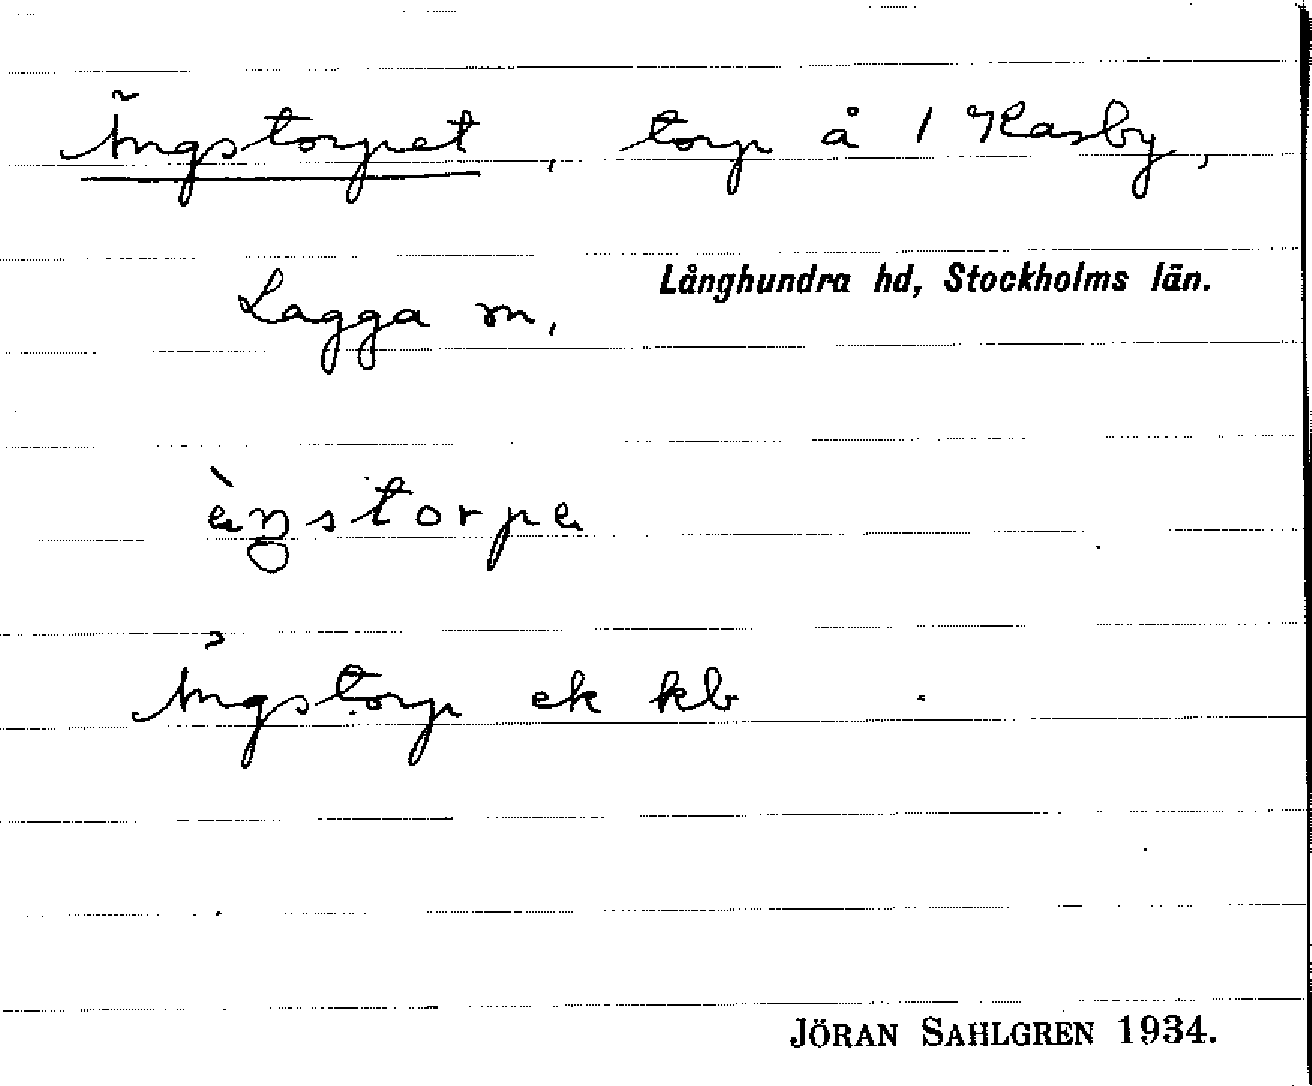 Ängstorpet, torp å 1 Kasby,
Långhundra hd, Stockholms län.
Lagga sn,
ὲŋstorpe
Ängstorp ek kb
JÖRAN SAHLGREN 1934.